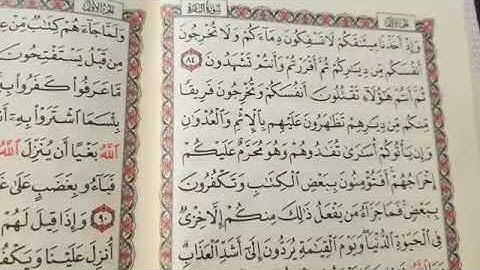 سُورَةُ البَقَرَةِ
وَإِذْ أَخَذْنَا مِيثَٰقَكُمْ لَا تَسْفِكُونَ دِمَآءَكُمْ وَلَا تُخْرِجُونَ
أَنفُسَكُم مِّن دِيَٰرِكُمْ ثُمَّ أَقْرَرْتُمْ وَأَنتُمْ تَشْهَدُونَ ٨٤
ثُمَّ أَنتُمْ هَٰٓؤُلَآءِ تَقْتُلُونَ أَنفُسَكُمْ وَتُخْرِجُونَ فَرِيقًا
مِّنكُم مِّن دِيَٰرِهِمْ تَظَٰهَرُونَ عَلَيْهِم بِٱلْإِثْمِ وَٱلْعُدْوَٰنِ
وَإِن يَأْتُوكُمْ أُسَٰرَىٰ تُفَٰدُوهُمْ وَهُوَ مُحَرَّمٌ عَلَيْكُمْ
إِخْرَاجُهُمْ أَفَتُؤْمِنُونَ بِبَعْضِ ٱلْكِتَٰبِ وَتَكْفُرُونَ
بِبَعْضٍ فَمَا جَزَآءُ مَن يَفْعَلُ ذَٰلِكَ مِنكُمْ إِلَّا خِزْىٌ
فِى ٱلْحَيَوٰةِ ٱلدُّنْيَا وَيَوْمَ ٱلْقِيَٰمَةِ يُرَدُّونَ إِلَىٰٓ أَشَدِّ ٱلْعَذَابِ
الجُزْءُ الأَوَّلُ
وَلَمَّا جَآءَهُمْ كِتَٰبٌ مِّنْ
مِن قَبْلُ يَسْتَفْتِحُونَ
مَّا عَرَفُوا۟ كَفَرُوا۟ بِ
بِئْسَمَا ٱشْتَرَوْا۟ بِهِۦٓ
ٱللَّهُ بَغْيًا أَن يُنَزِّلَ ٱللَّهُ
فَبَآءُو بِغَضَبٍ عَلَىٰ
٩٠ وَإِذَا قِيلَ لَهُمْ
أُنزِلَ عَلَيْنَا وَيَكْفُ